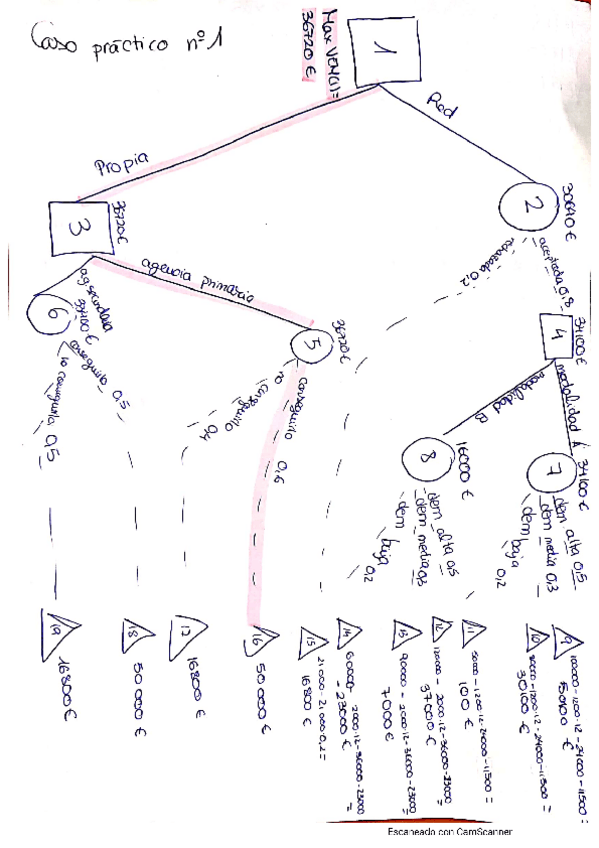 Caso práctico nº1
1
Max VEM(1)=
36720 €
Red
Propia
2
30640 €
aceptada 0,8
rechazada 0,2
3
36720 €
agencia primaria
ag secundaria
4
34100 €
modalidad A
modalidad B
5
36720 €
conseguirlo 0,6
no conseguirlo 0,4
6
33400 €
conseguirlo 0,5
no conseguirlo 0,5
7
34100 €
dem alta 0,5
dem media 0,3
dem baja 0,2
8
16000 €
dem alta 0,5
dem media 0,3
dem baja 0,2
9
100000 - 1200·12 - 24000 - 11500 =
50100 €
10
80000 - 1200·12 - 24000 - 11500 =
30100 €
11
50000 - 1200·12 - 24000 - 11500 =
100 €
12
120000 - 2000·12 - 36000 - 23000
37000 €
13
90000 - 2000·12 - 36000 - 23000
7000 €
14
60000 - 2000·12 - 36000 - 23000 =
- 23000 €
15
21000 - 21000·0,2 =
16800 €
16
50 000 €
17
16800 €
18
50 000 €
19
16800 €
Escaneado con CamScanner